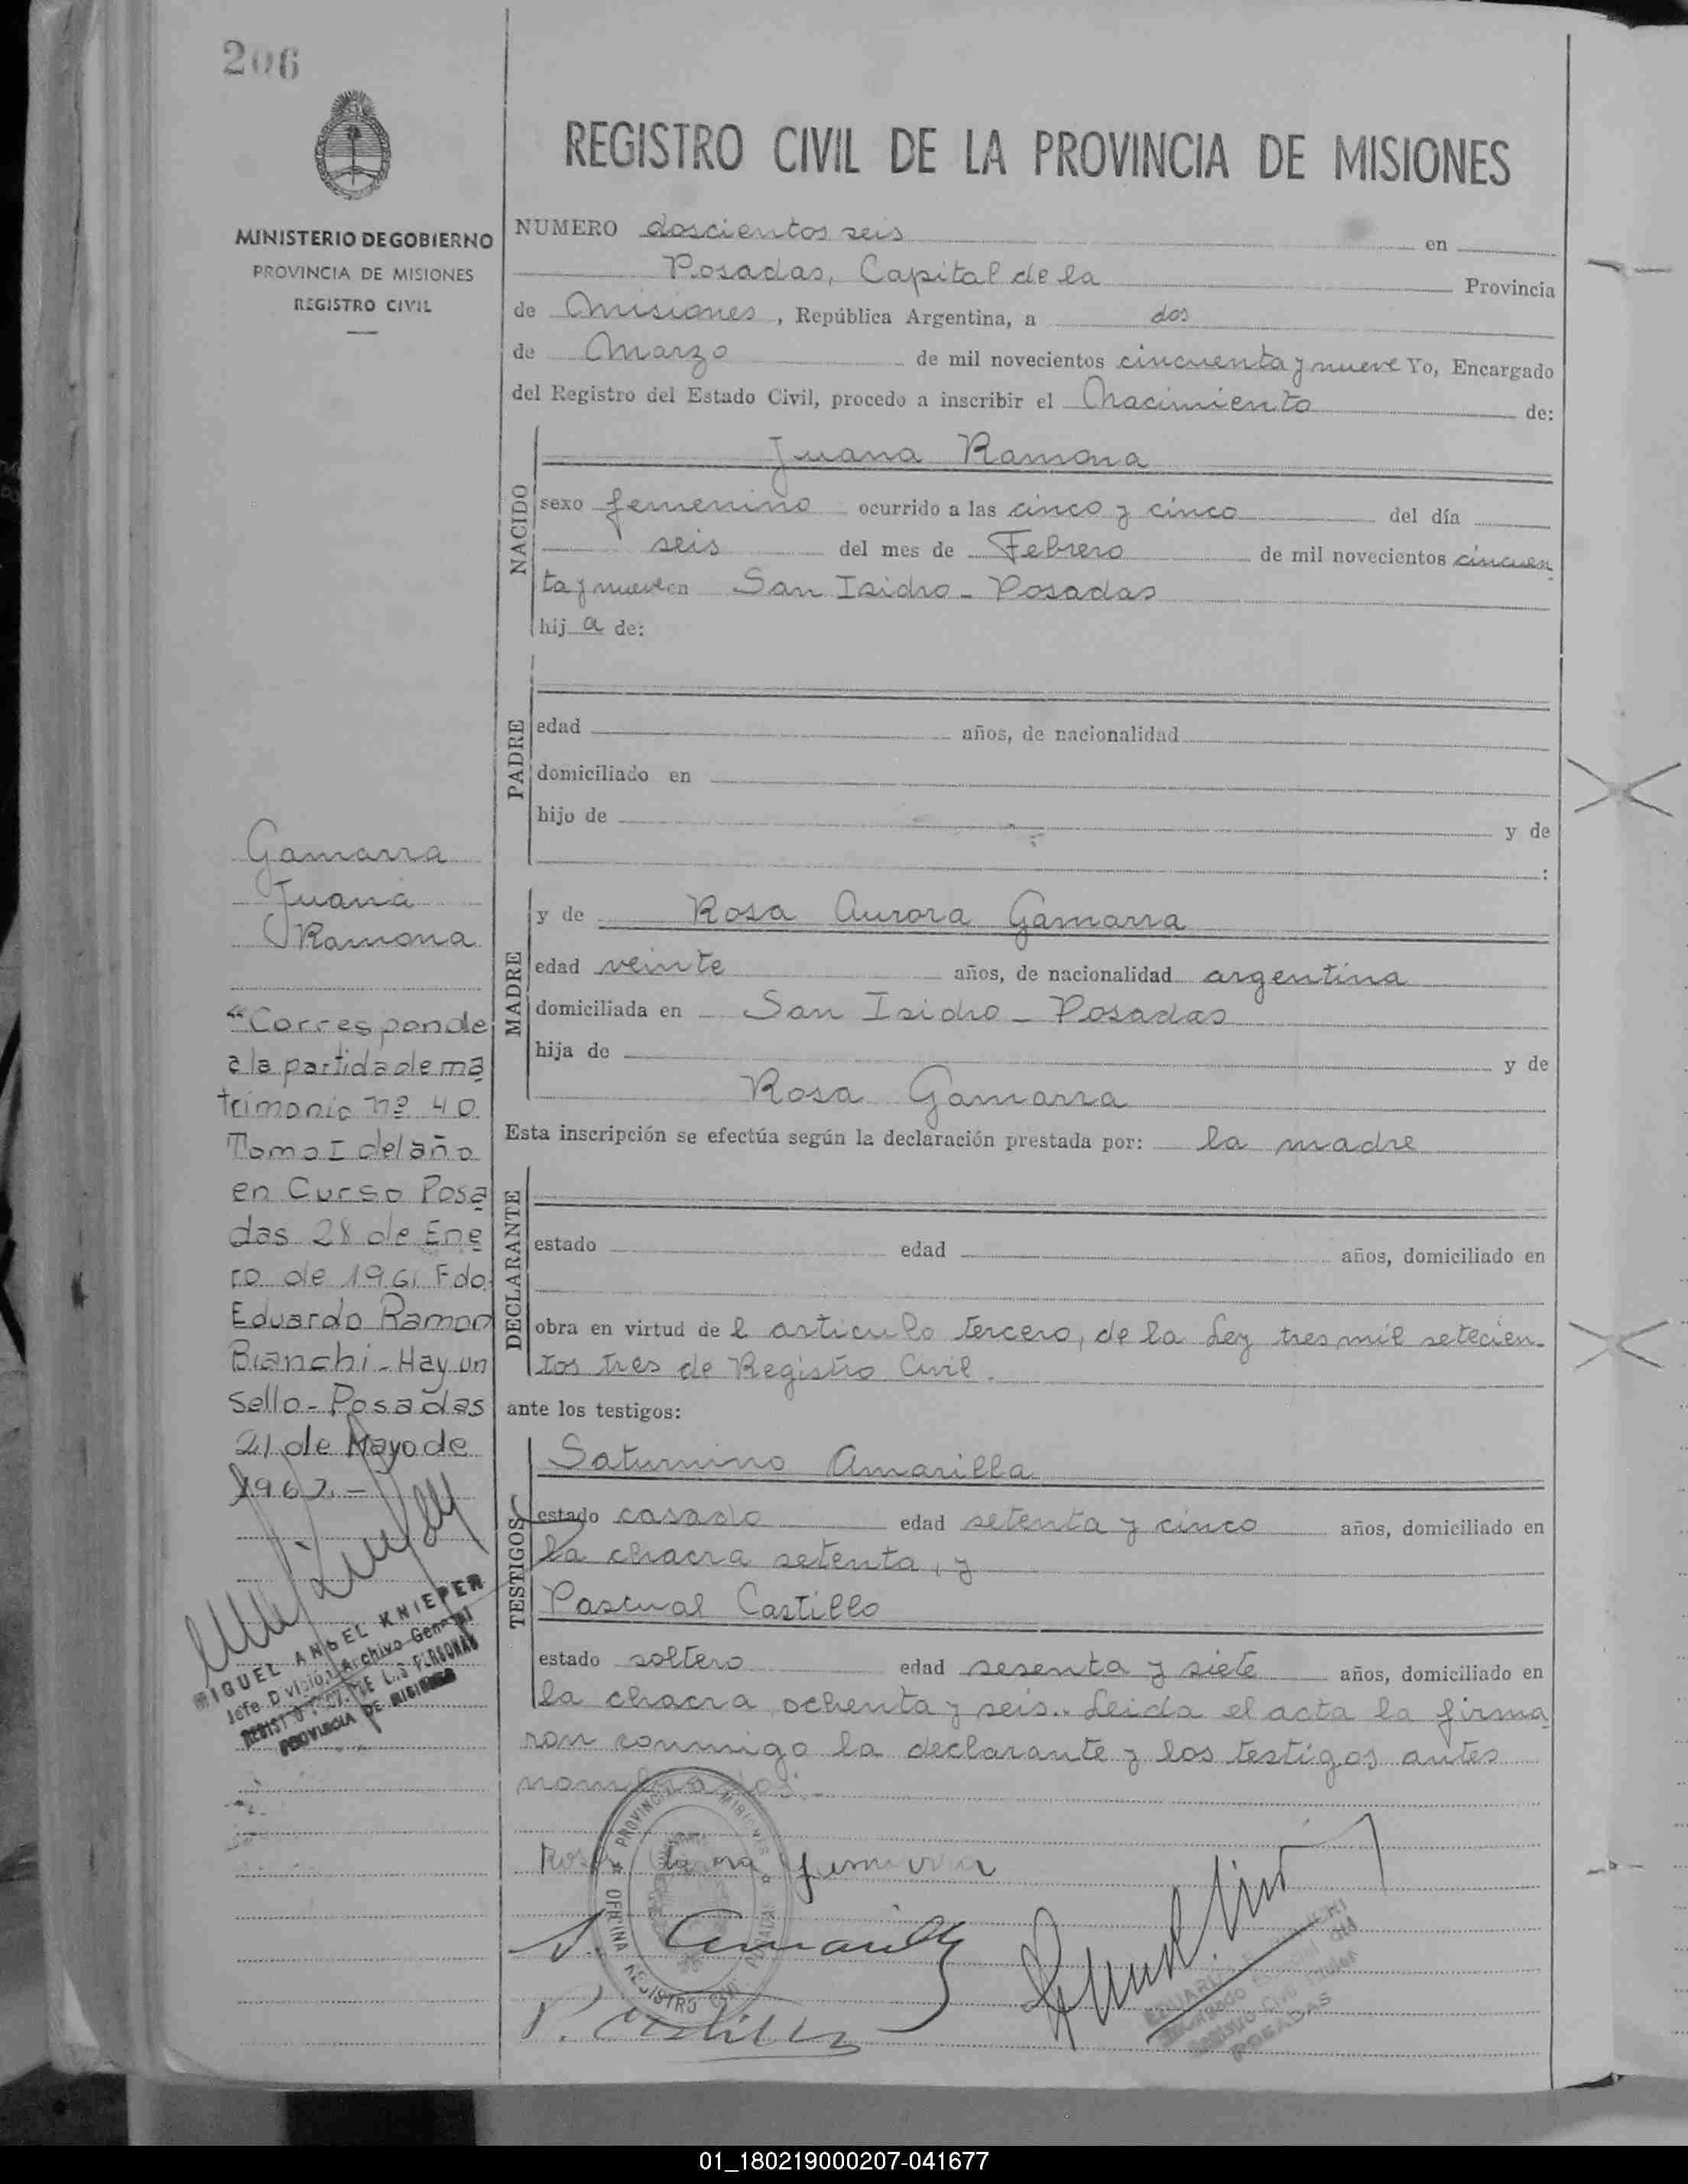 206
MINISTERIO DE GOBIERNO
PROVINCIA DE MISIONES
REGISTRO CIVIL
REGISTRO CIVIL DE LA PROVINCIA DE MISIONES
NUMERO doscientos seis en
Posadas, Capital de la Provincia
de Misiones, República Argentina, a dos
de Marzo de mil novecientos cincuenta y nueve Yo, Encargado
del Registro del Estado Civil, procedo a inscribir el Nacimiento de:
NACIDO
Juana Ramona
sexo femenino ocurrido a las cinco y cinco del día
seis del mes de Febrero de mil novecientos cincuen
ta y nueve en San Isidro - Posadas
hija de:
PADRE
edad años, de nacionalidad
domiciliado en
hijo de y de
:
MADRE
y de Rosa Aurora Gamarra
edad veinte años, de nacionalidad argentina
domiciliada en San Isidro - Posadas
hija de y de
Rosa Gamarra
Esta inscripción se efectúa según la declaración prestada por: la madre
DECLARANTE
estado edad años, domiciliado en
obra en virtud de l articulo tercero, de la Ley tres mil setecien-
tos tres de Registro Civil.
ante los testigos:
TESTIGOS
Saturnino Amarilla
estado casado edad setenta y cinco años, domiciliado en
la chacra setenta, y
Pascual Castillo
estado soltero edad sesenta y siete años, domiciliado en
la chacra ochenta y seis.. Leida el acta la firma
ron conmigo la declarante y los testigos antes
nombrados.-
Gamarra
Juana
Ramona
"Corresponde
a la partida de ma
trimonio nº 40
Tomo I del año
en Curso Posa
das 28 de Ene
ro de 1961 Fdo.
Eduardo Ramon
Bianchi - Hay un
Sello - Posadas
21 de Mayo de
1962.-
MIGUEL ANGEL KNIEPER
Jefe División Archivo General
REGIST DE LAS PERSONAS
PROVINCIA DE MISIONES
PROVINCIA MISIONES
OFICINA REGISTRO CIVIL POSADAS
S. Amarilla
P. Castillo
POSADAS
01_180219000207-041677